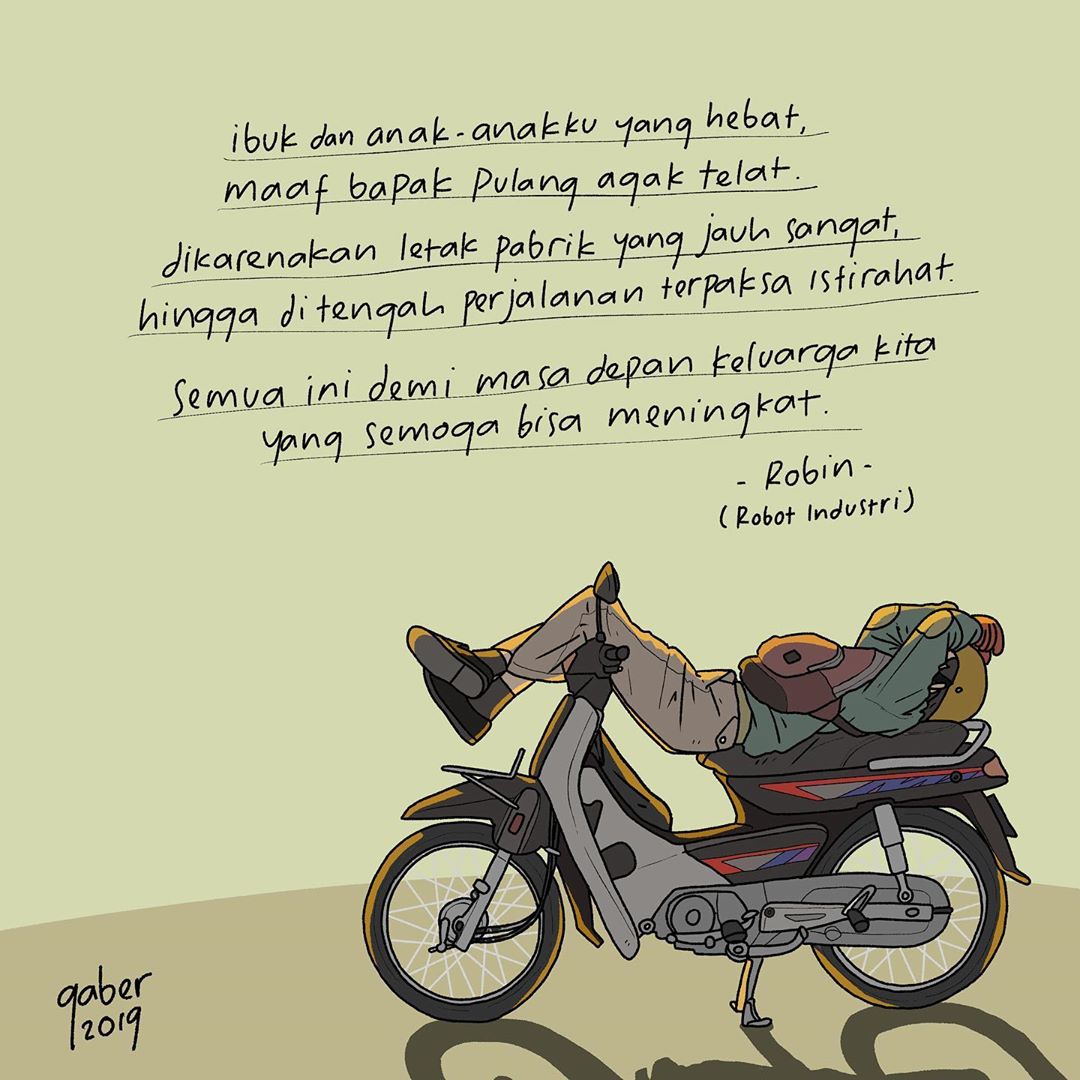 ibuk dan anak-anakku yang hebat,
maaf bapak pulang agak telat.
dikarenakan letak pabrik yang jauh sangat,
hingga ditengah perjalanan terpaksa istirahat.
Semua ini demi masa depan keluarga kita
yang semoga bisa meningkat.
- Robin -
(Robot Industri)
gaber
2019